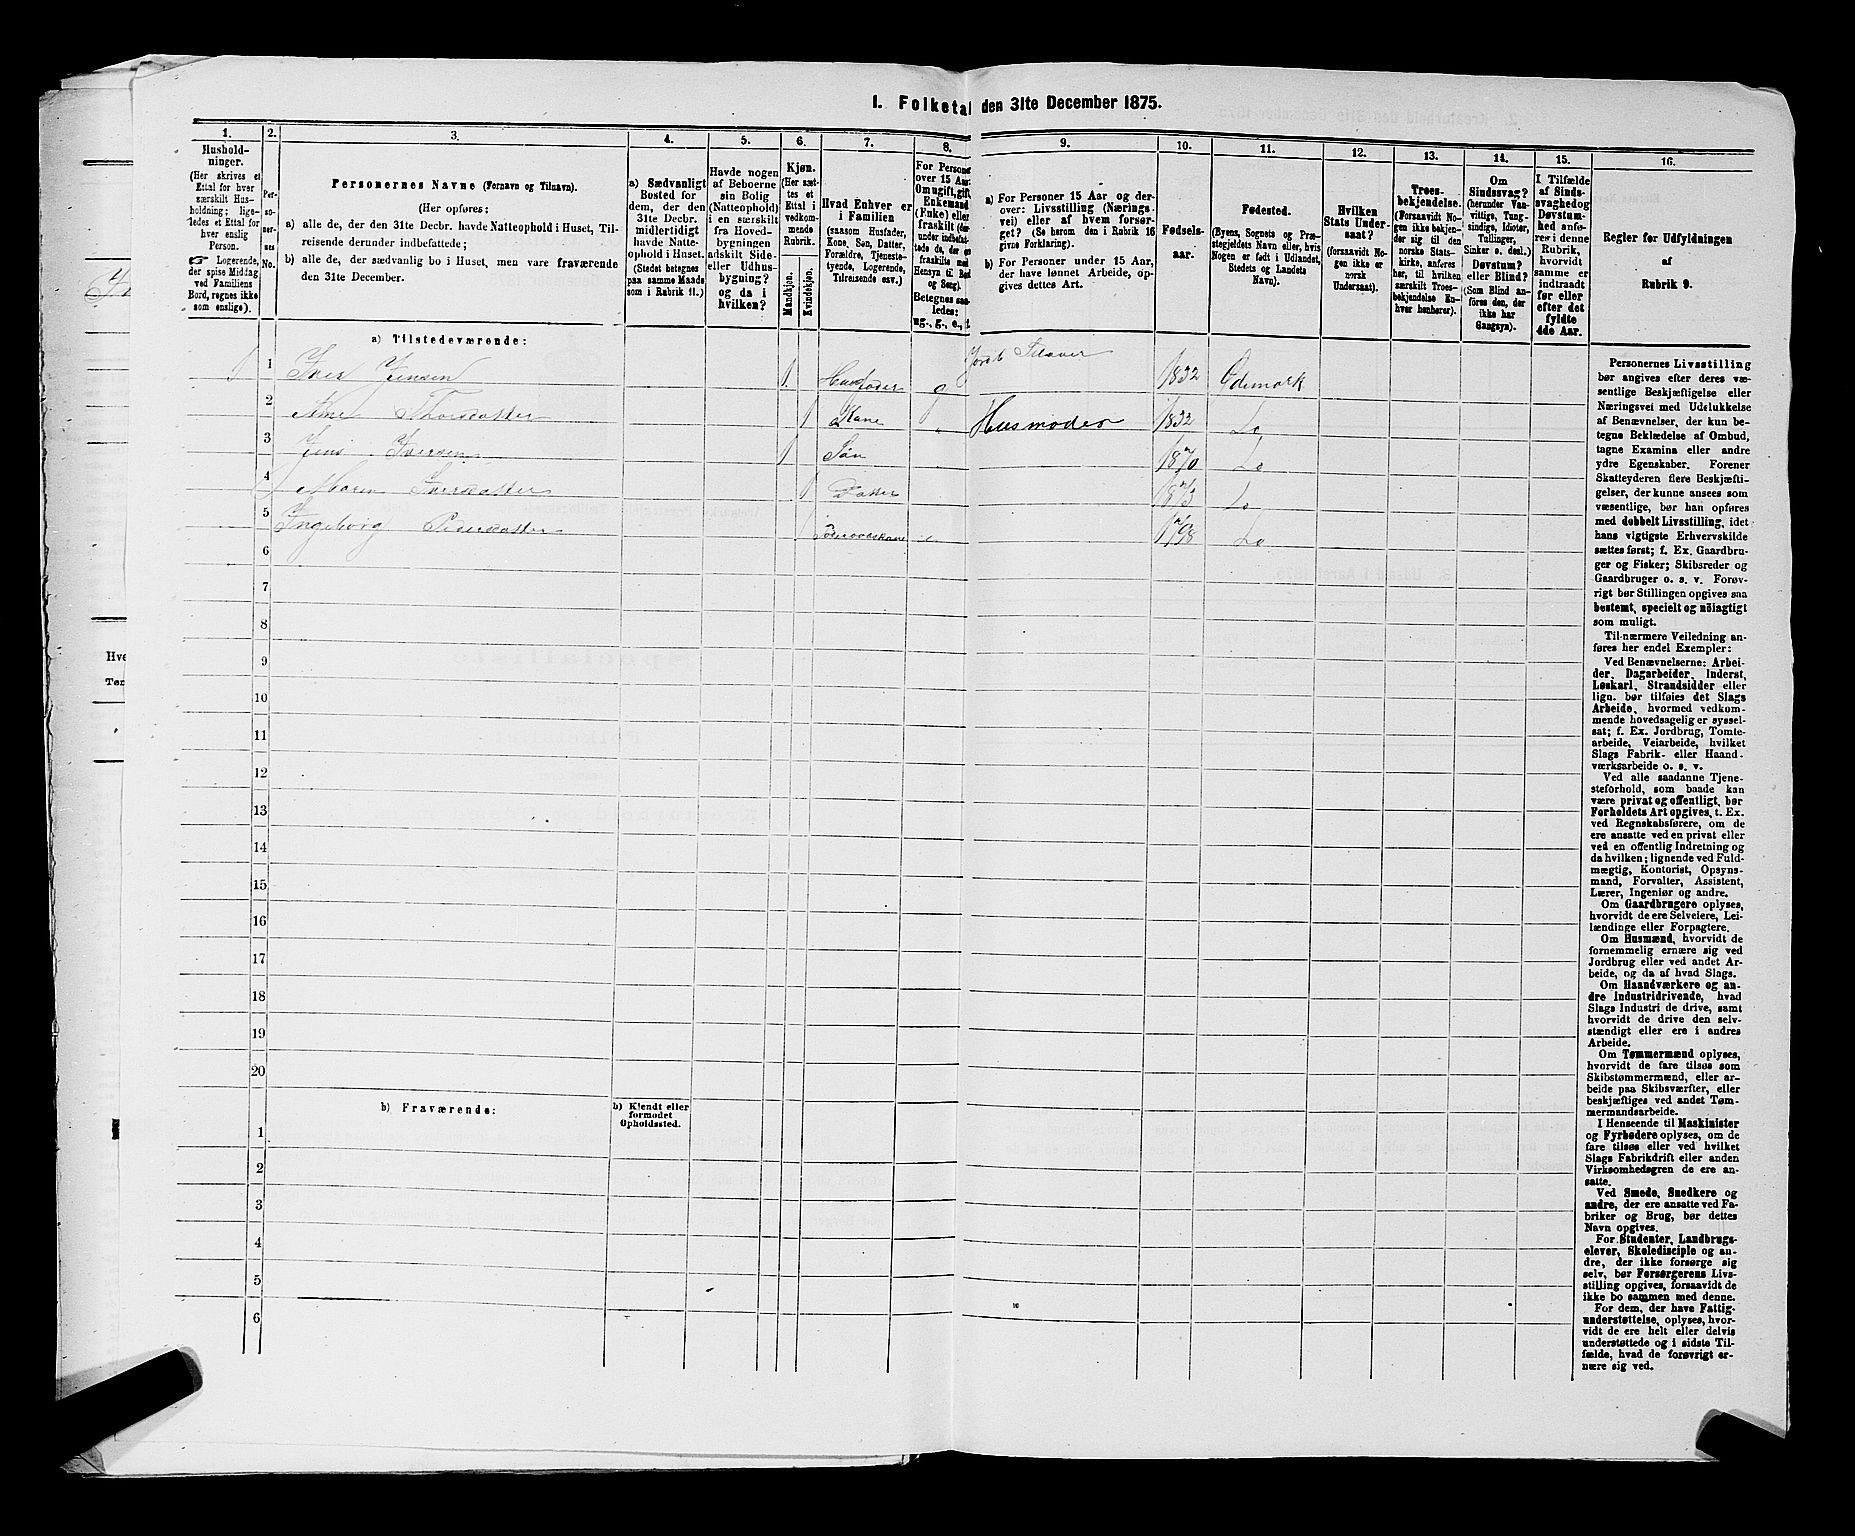 I. Folketal den 31te December 1875.
1.
2.
3.
4.
5.
6.
7.
8.
9.
10.
11.
12.
13.
14.
15.
16.
Hushold-
ninger.
(Her skrives et
Ettal for hver
særskilt Hus-
holdning; lige-
ledes et Ettal for
hver enslig
Person.
☞ Logerende,
der spise Middag
ved Familiens
Bord, regnes ikke
som enslige).
Per-
so-
ner-
nes
No.
Personernes Navne (Fornavn og Tilnavn).
(Her opføres:
a) alle de, der den 31te Decbr. havde Natteophold i Huset, Til-
reisende derunder indbefattede;
b) alle de, der sædvanlig bo i Huset, men vare fraværende
den 31te December.
a) Sædvanligt
Bosted for
dem, der den
31te Decbr.
midlertidigt
havde Natte-
ophold i Huset.
(Stedet betegnes
paa samme Maade
som i Rubrik 11.)
Havde nogen
af Beboerne
sin Bolig
(Natteophold)
i en særskilt
fra Hoved-
bygningen
adskilt Side-
eller Udhus-
bygning?
og da i
hvilken?
Kjøn.
(Her sæt-
tes et
Ettal i
vedkom-
mende
Rubrik.
Mandkjøn.
Kvindekjøn.
Hvad Enhver er
i Familien
(saasom Husfader,
Kone, Søn, Datter,
Forældre, Tjeneste-
tyende, Logerende,
Tilreisende osv.)
For Persone
over 15 Aar
Om ugift, gift,
Enkemand
(Enke) eller
fraskilt (der-
under indbefat-
tede de, der ere
fraskilte med
Hensyn til Bord
og Seng).
Betegnes saa-
ledes:
ug., g., e., f.
a) For Personer 15 Aar og der-
over: Livsstilling (Nærings-
vei) eller af hvem forsør-
get? (Se herom den i Rubrik 16
givne Forklaring).
b) For Personer under 15 Aar,
der have lønnet Arbeide, op-
gives dettes Art.
Fødsels-
aar.
Fødested.
(Byens, Sognets og Præ-
stegjeldets Navn eller, hvis
Nogen er født i Udlandet,
Stedets og Landets
Navn).
Hvilken
Stats Under-
saat?
(forsaavidt No-
gen ikke er
norsk
Undersaat).
Troes-
bekjendelse.
(Forsaavidt No-
gen ikke bekjen-
der sig til den
norske Stats-
kirke, anføres
her, til hvilken
særskilt Troes-
bekjendelse En-
hver henhører).
Om
Sindssvag?
(herunder Van-
vittige, Tung-
sindige, Idioter,
Tullinger,
Sinker o. desl.)
Døvstum?
eller Blind?
(Som Blind an-
føres den, der
ikke har
Gangsyn).
I Tilfælde
af Sinds-
svaghed og
Døvstum-
hed anfø-
res i denne
Rubrik,
hvorvidt
samme er
indtraadt
før eller
efter det
fyldte
4de Aar.
Regler for Udfyldningen
af
Rubrik 9.
a) Tilstedeværende:
1 1 Iver Jensen 1 Husfader g Jordb Selveier 1832 Ødemark
2 Ane Thorsdatter 1 Kone g Husmoder 1832 Do
3 Jens Iversen 1 Søn 1870 Do
4 Maren Iversdatter 1 Datter 1873 Do
5 Ingeborg Pedersdatter 1 1798 Do
6
7
8
9
10
11
12
13
14
15
16
17
18
19
20
b) Fraværende:
b) Kjendt eller
formodet
Opholdssted.
1
2
3
4
5
6
Personernes Livsstilling
bør angives efter deres væ-
sentlige Beskjæftigelse eller
Næringsvei med Udelukkelse
af Benævnelser, der kun be-
tegne Beklædelse af Ombud,
tagne Examina eller andre
ydre Egenskaber. Forener
Skatteyderen flere Beskjæfti-
gelser, der kunne ansees som
væsentlige, bør han opføres
med dobbelt Livsstilling, idet
hans vigtigste Erhvervskilde
sættes først; f. Ex. Gaardbru-
ger og Fisker; Skibsreder og
Gaardbruger o. s. v. Forøv-
rigt bør Stillingen opgives saa
bestemt, specielt og nöiagtigt
som muligt.
Til nærmere Veiledning an-
føres her endel Exempler:
Ved Benævnelserne: Arbei-
der, Dagarbeider, Inderst,
Løskarl, Strandsidder eller
lign. bør tilføies det Slags
Arbeide, hvormed vedkom-
mende hovedsagelig er syssel-
sat; f. Ex. Jordbrug, Tomte-
arbeide, Veiarbeide, hvilket
Slags Fabrik- eller Haand-
værksarbeide o. s. v.
Ved alle saadanne Tjene-
steforhold, som baade kan
være privat og offentligt, bør
Forholdets Art opgives, t. Ex.
ved Regnskabsførere, om de
ere ansatte ved en privat eller
ved en offentlig Indretning og
da hvilken; lignende ved Fuld-
mægtig, Kontorist, Opsyns-
mand, Forvalter, Assistent,
Lærer, Ingeniør og andre.
Om Gaardbrugere oplyses,
hvorvidt de ere Selveiere, Lei-
lændinge eller Forpagtere.
Om Husmænd, hvorvidt de
fornemmelig ernære sig ved
Jordbrug eller ved andet Ar-
beide, og da af hvad Slags.
Om Haandværkere og an-
dre Industridrivende, hvad
Slags Industri de drive, samt
hvorvidt de drive den selv-
stændigt eller ere i andres
Arbeide.
Om Tømmermænd oplyses,
hvorvidt de fare tilsøs som
Skibstømmermænd, eller ar-
beide paa Skibsværfter, eller
beskjæftiges ved andet Tøm-
mermandsarbeide.
I Henseende til Maskinister
og Fyrbødere oplyses, om de
fare tilsøs eller ved hvilket
Slags Fabrikdrift eller anden
Virksomhedsgren de ere an-
satte.
Ved Smede, Snedkere og
andre, der ere ansatte ved Fa-
briker og Brug, bør dettes
Navn opgives.
For Studenter, Landbrugs-
elever, Skoledisciple og an-
dre, der ikke forsørge sig
selv, bør Forsørgerens Livs-
stilling opgives, forsaavidt de
ikke bo sammen med denne.
For dem, der have Fattig-
understøttelse, oplyses, hvor-
vidt de ere helt eller delvis
understøttede og i sidste Til-
fælde, hvad de forøvrigt er-
nære sig ved.